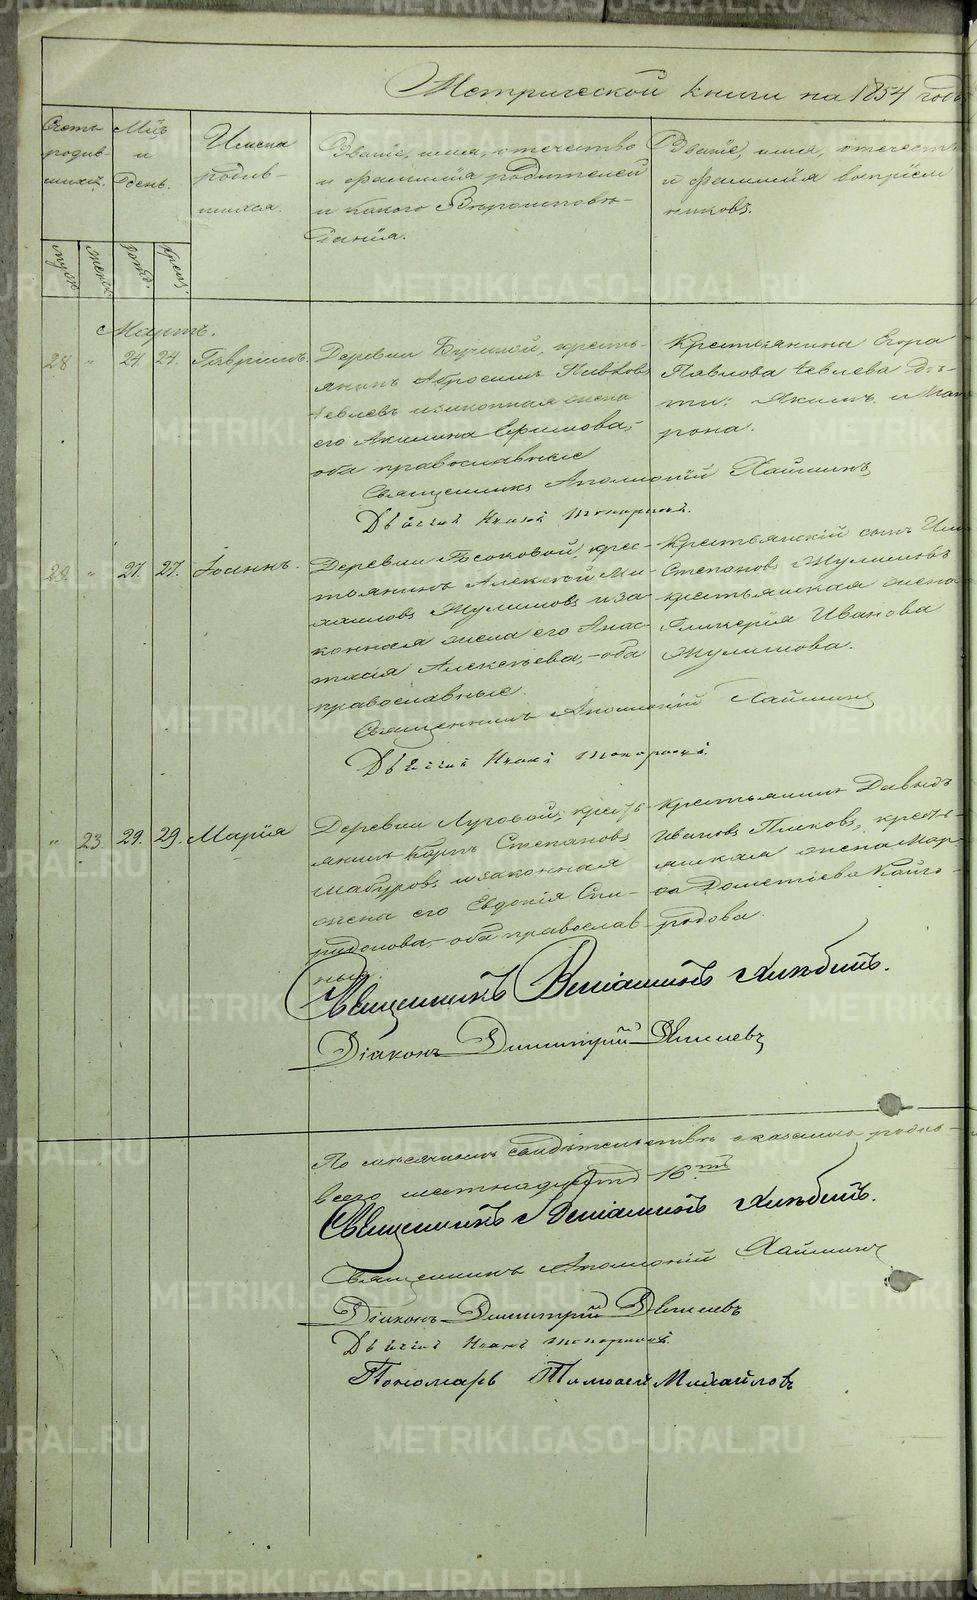 Метрической книги на 1854 годъ
Счетъ родив-шихся.
Мѣс. и День.
Имена родив-шихся.
Званіе, имя, отечество
и фамилія родителей
и какого Вѣроисповѣ-
данія.
Званіе, имя, отечество
и фамилія воспріем
никовъ.
муж.
женск.
рожд.
крещ.
Мартъ.
28 " 24. 24. Гавріилъ.
Деревни кресть-
янинъ Абросимъ
Іевлевъ и законная жена
его Акилина Ефимова, -
оба православные
Крестьянина Егора
Павлова Іевлева дѣ-
ти: Якимъ и Мат
рона.
Священникъ Аполлоній
29. " 27. 27. Іоаннъ.
Деревни крес-
тьянинъ Алексѣй Ми-
хаиловъ Жулимовъ и за-
конная жена его Анас-
тасія Алексѣева, - оба
православные.
Крестьянскій сынъ
Степановъ Жулимовъ
крестьянская жена
Гликерія Иванова
Жулимова.
Священникъ Аполлоній
" 23. 29. 29. Марія
Деревни Луговой, кресть-
янинъ Карпъ Степановъ
Шабуровъ и законная
жена его Евдокія Спи-
ридонова, - оба православ-
ные.
крестьянинъ Давыдъ
Ивановъ кресть-
янская жена Мар-
ѳа Дометіева Кайго-
родова.
Священникъ Веніаминъ Хлѣбинъ.
Діаконъ Димитрій
По мѣсячнымъ
всего шестнадцать 16.
Священникъ Веніаминъ Хлѣбинъ.
Священникъ Аполлоній
Діаконъ Димитрій
Пономарь Тимоѳей Михайловъ
METRIKI.GASO-URAL.RU